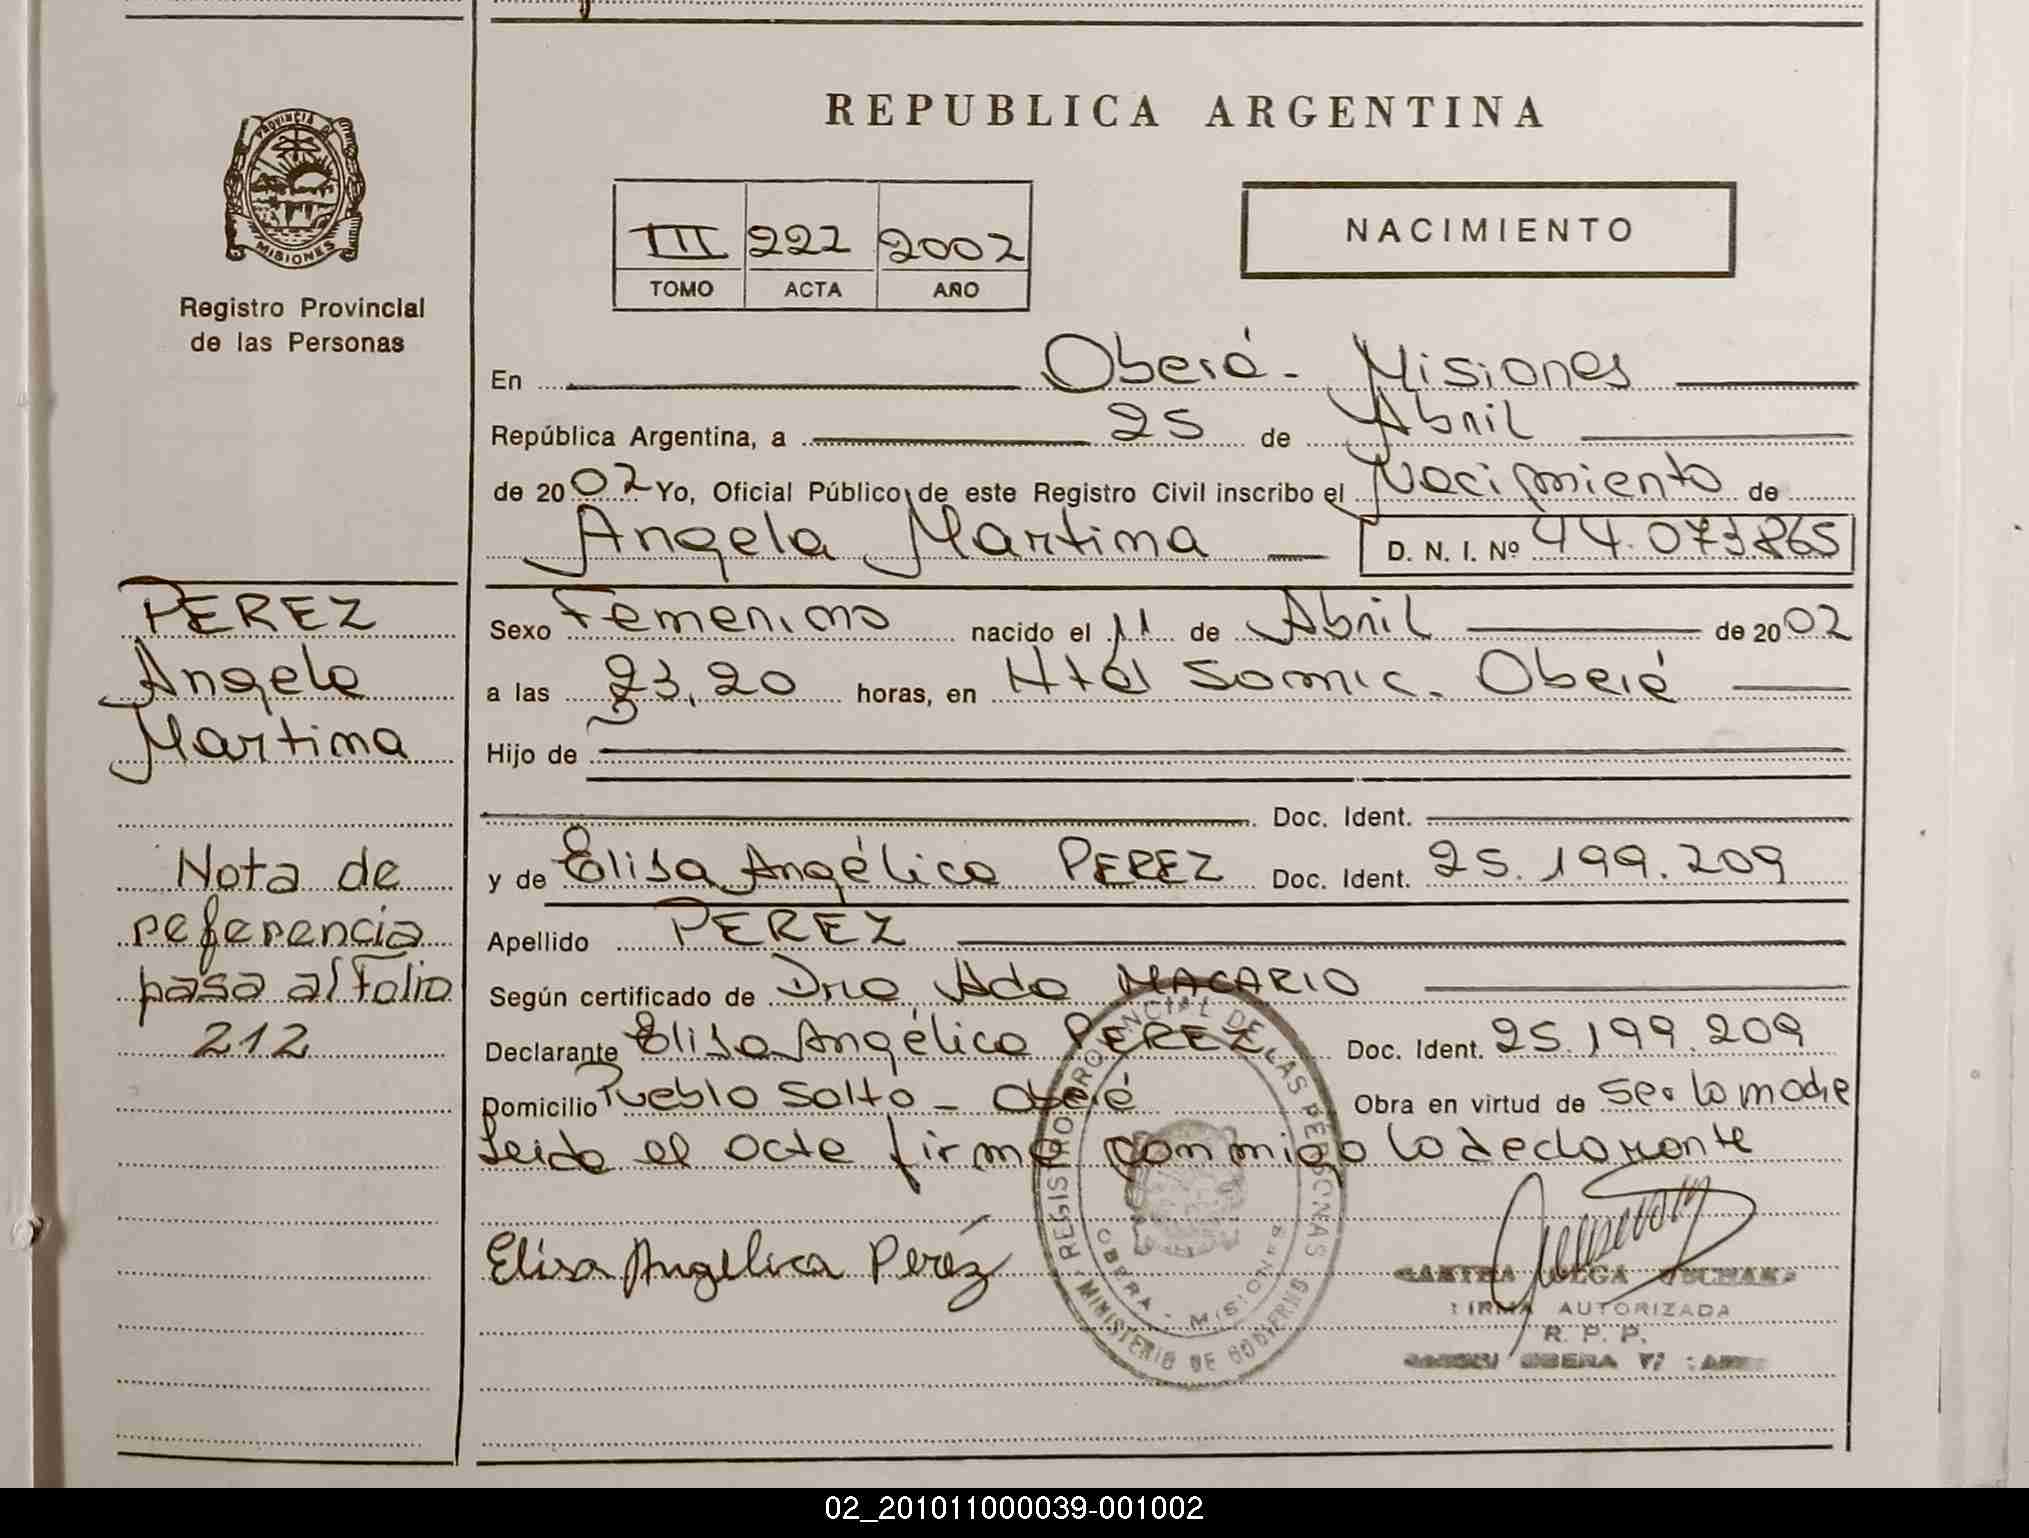 REPUBLICA ARGENTINA
PROVINCIA DE
MISIONES
Registro Provincial
de las Personas
III 222 2002
TOMO ACTA AÑO
NACIMIENTO
En Oberá - Misiones
República Argentina, a 25 de Abril
de 2002 Yo, Oficial Público de este Registro Civil inscribo el Nacimiento de
Angela Martina D. N. I. Nº 44.073.865
PEREZ
Angela
Martina
Sexo Femenino nacido el 11 de Abril de 2002
a las 23,20 horas, en Htal Samic. Oberá
Hijo de
Doc. Ident.
y de Elisa Angélica PEREZ Doc. Ident. 25.199.209
Nota de
referencia
pasa al Folio
212
Apellido PEREZ
Según certificado de Dra Ada MACARIO
Declarante Elisa Angélica PEREZ Doc. Ident. 25.199.209
Domicilio Pueblo Salto - Oberá Obra en virtud de ser la madre
Leida el acta firma conmigo la declarante
Elisa Angelica Peréz
REGISTRO PROVINCIAL DE LAS PERSONAS
OBERA - MISIONES
MINISTERIO DE GOBIERNO
OLGA
FIRMA AUTORIZADA
R. P. P.
OBERA
02_201011000039-001002